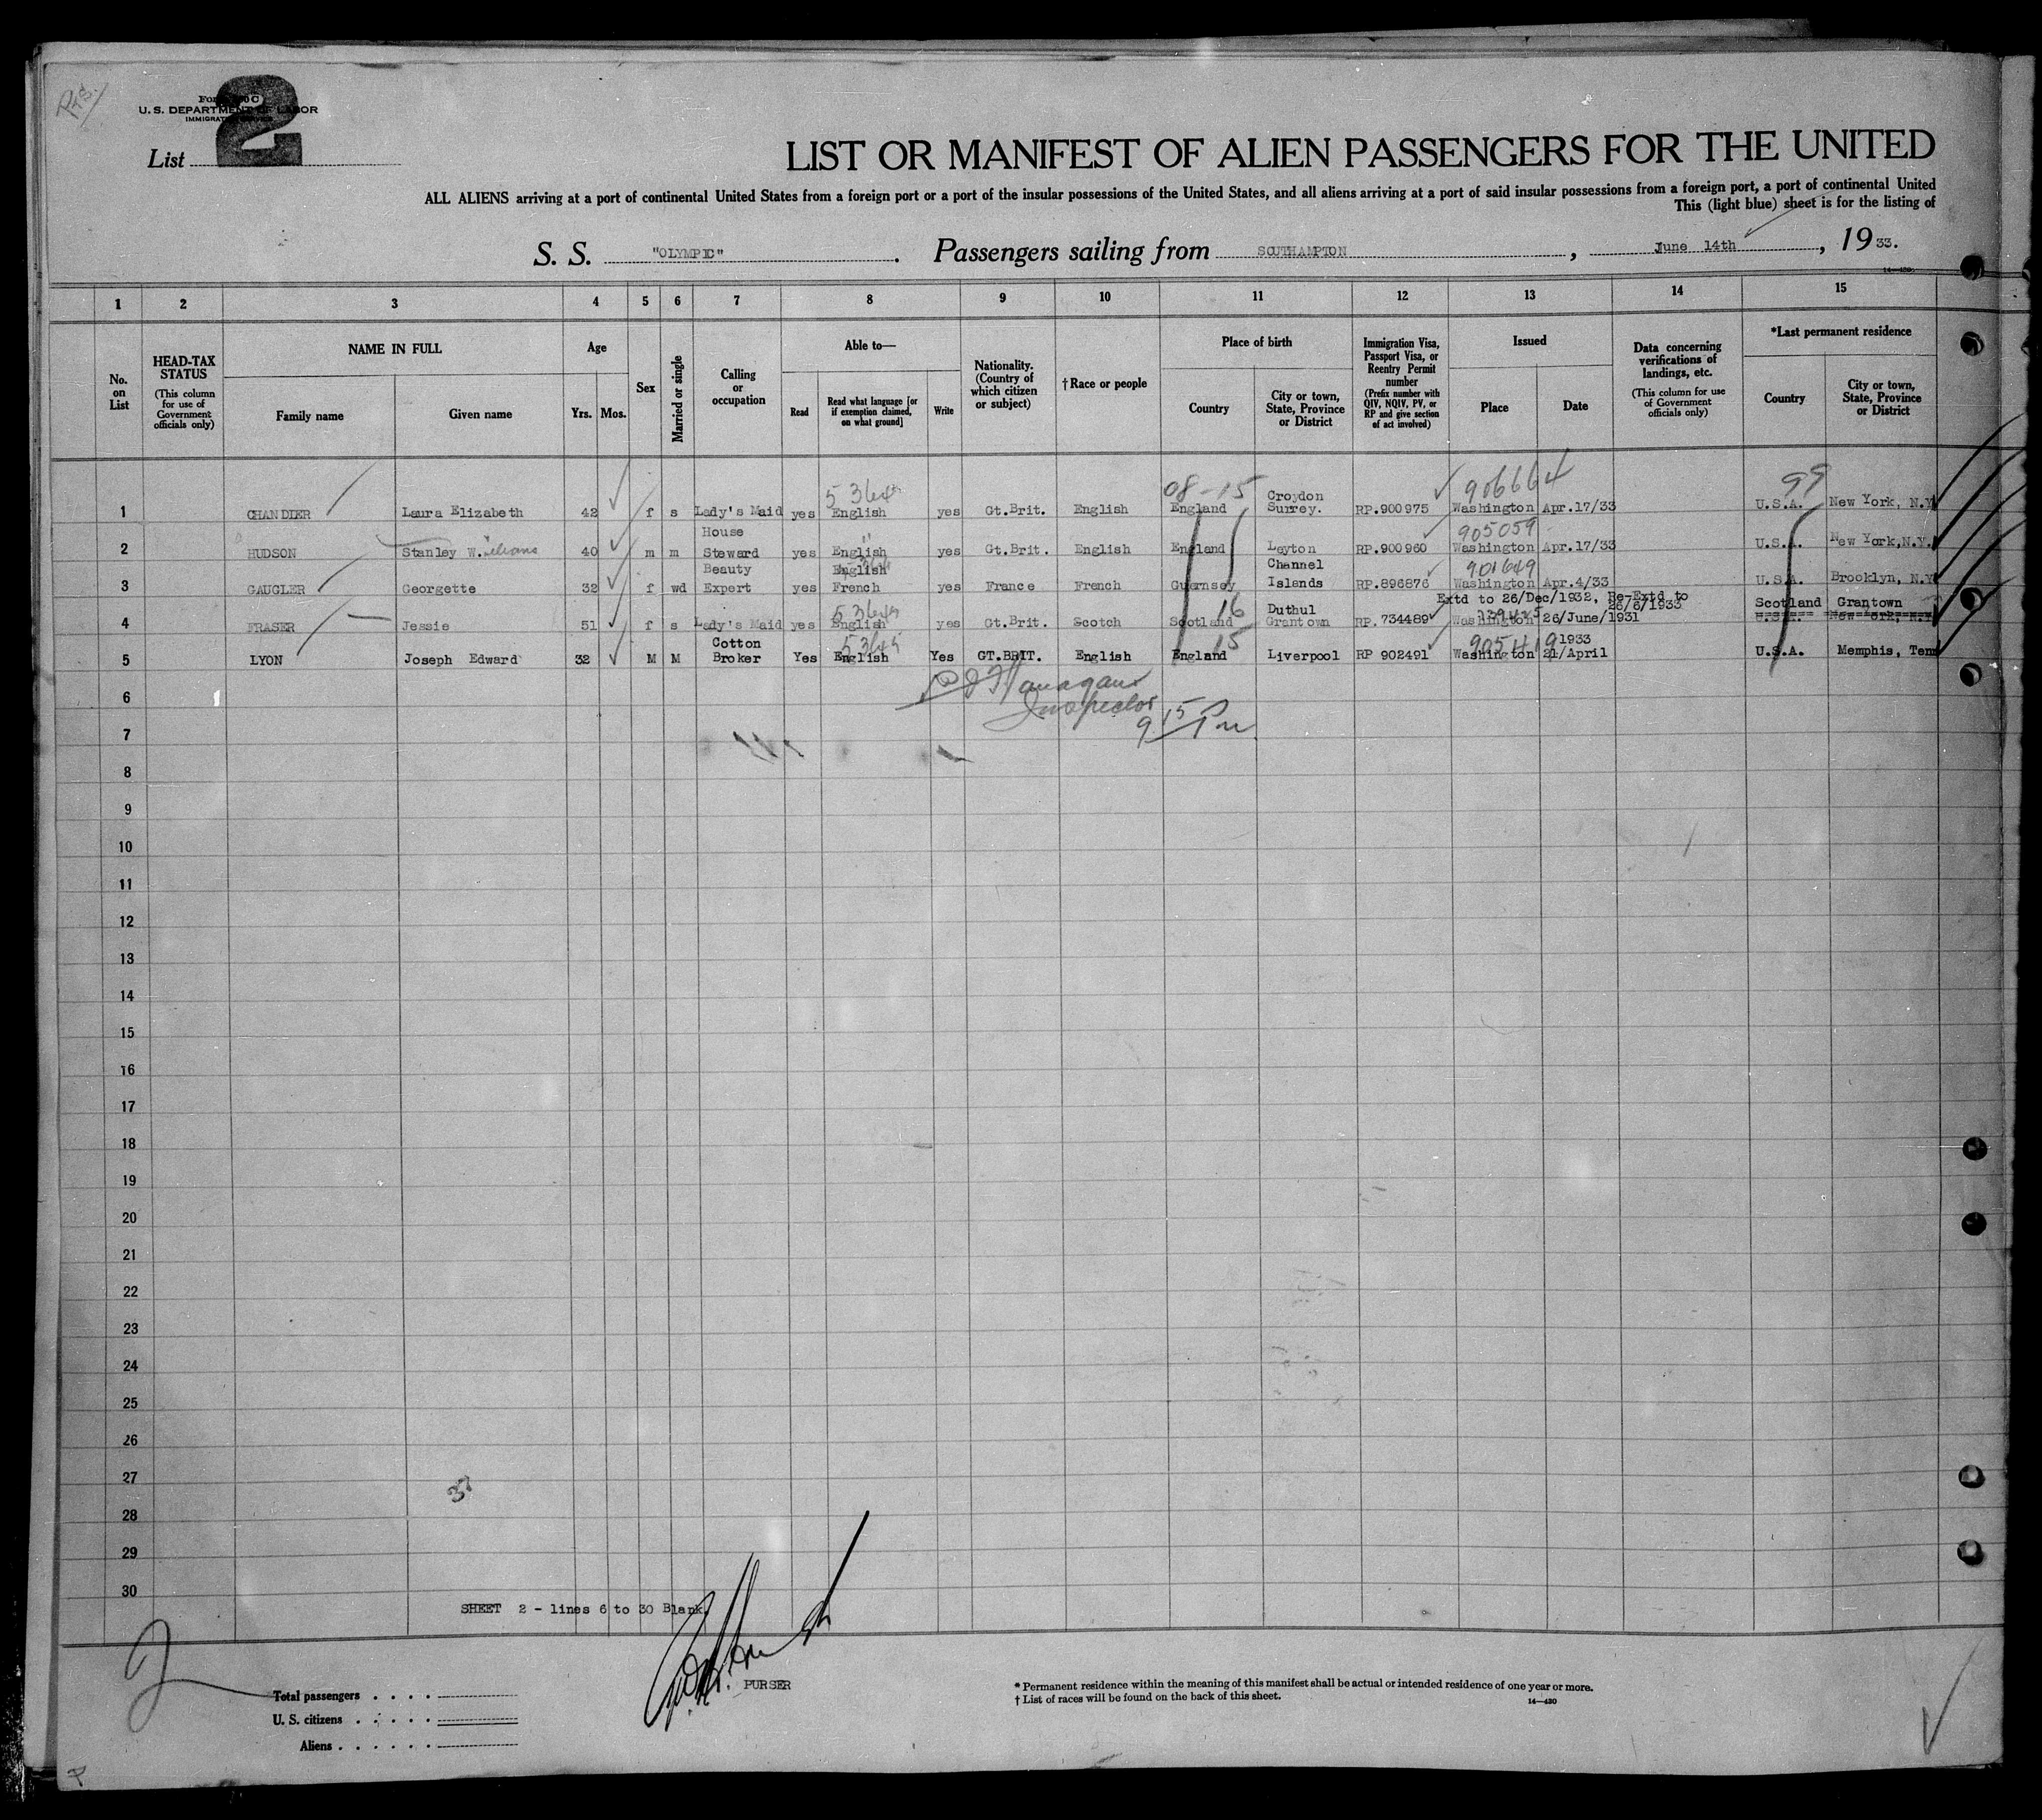 Pts.
2
U. S. DEPARTMENT OF LABOR
List
LIST OR MANIFEST OF ALIEN PASSENGERS FOR THE UNITED
ALL ALIENS arriving at a port of continental United States from a foreign port or a port of the insular possessions of the United States, and all aliens arriving at a port of said insular possessions from a foreign port, a port of continental United
This (light blue) sheet is for the listing of
S. S. "OLYMPIC" . Passengers sailing from SOUTHAMPTON , June 14th , 19 33.
1 2 3 4 5 6 7 8 9 10 11 12 13 14 15
No. on List
HEAD-TAX STATUS (This column for use of Government officials only)
NAME IN FULL
Family name
Given name
Age
Yrs. Mos.
Sex
Married or single
Calling or occupation
Able to—
Read
Read what language [or if exemption claimed, on what ground]
Write
Nationality. (Country of which citizen or subject)
† Race or people
Place of birth
Country
City or town, State, Province or District
Immigration Visa, Passport Visa, or Reentry Permit number (Prefix number with QIV, NQIV, PV, or RP and give section of act involved)
Issued
Place
Date
Data concerning verifications of landings, etc. (This column for use of Government officials only)
*Last permanent residence
Country
City or town, State, Province or District
08-15 906664 99
1 CHANDLER Laura Elizabeth 42 f s Lady's Maid yes English yes Gt.Brit. English England Croydon Surrey. RP.900975 Washington Apr.17/33 U.S.A. New York, N.Y
905059
2 HUDSON Stanley W. 40 m m House Steward yes English yes Gt.Brit. English England Leyton RP.900960 Washington Apr.17/33 U.S.A. New York,N.Y.
901649
3 GAUGLER Georgette 32 f wd Beauty Expert yes English French yes France French Guernsey Channel Islands RP.896876 Washington Apr.4/33 U.S.A. Brooklyn, N.Y
Extd to 26/Dec/1932, Re-Extd to 26/6/1933
16
4 FRASER Jessie 51 f s Lady's Maid yes English yes Gt.Brit. Scotch Scotland Duthul Grantown RP.734489 Washington 26/June/1931 Scotland Grantown U.S.A. New York, N.Y
15 905419
5 LYON Joseph Edward 32 M M Cotton Broker Yes English Yes GT.BRIT. English England Liverpool RP 902491 Washington 21/April 1933 U.S.A. Memphis, Tenn
6 Flanagan
Inspector
7 9 15 Pm
8
9
10
11
12
13
14
15
16
17
18
19
20
21
22
23
24
25
26
27
28
29
30
SHEET 2 - lines 6 to 30 Blank.
PURSER
Total passengers
U. S. citizens
Aliens
* Permanent residence within the meaning of this manifest shall be actual or intended residence of one year or more.
† List of races will be found on the back of this sheet.
14—430